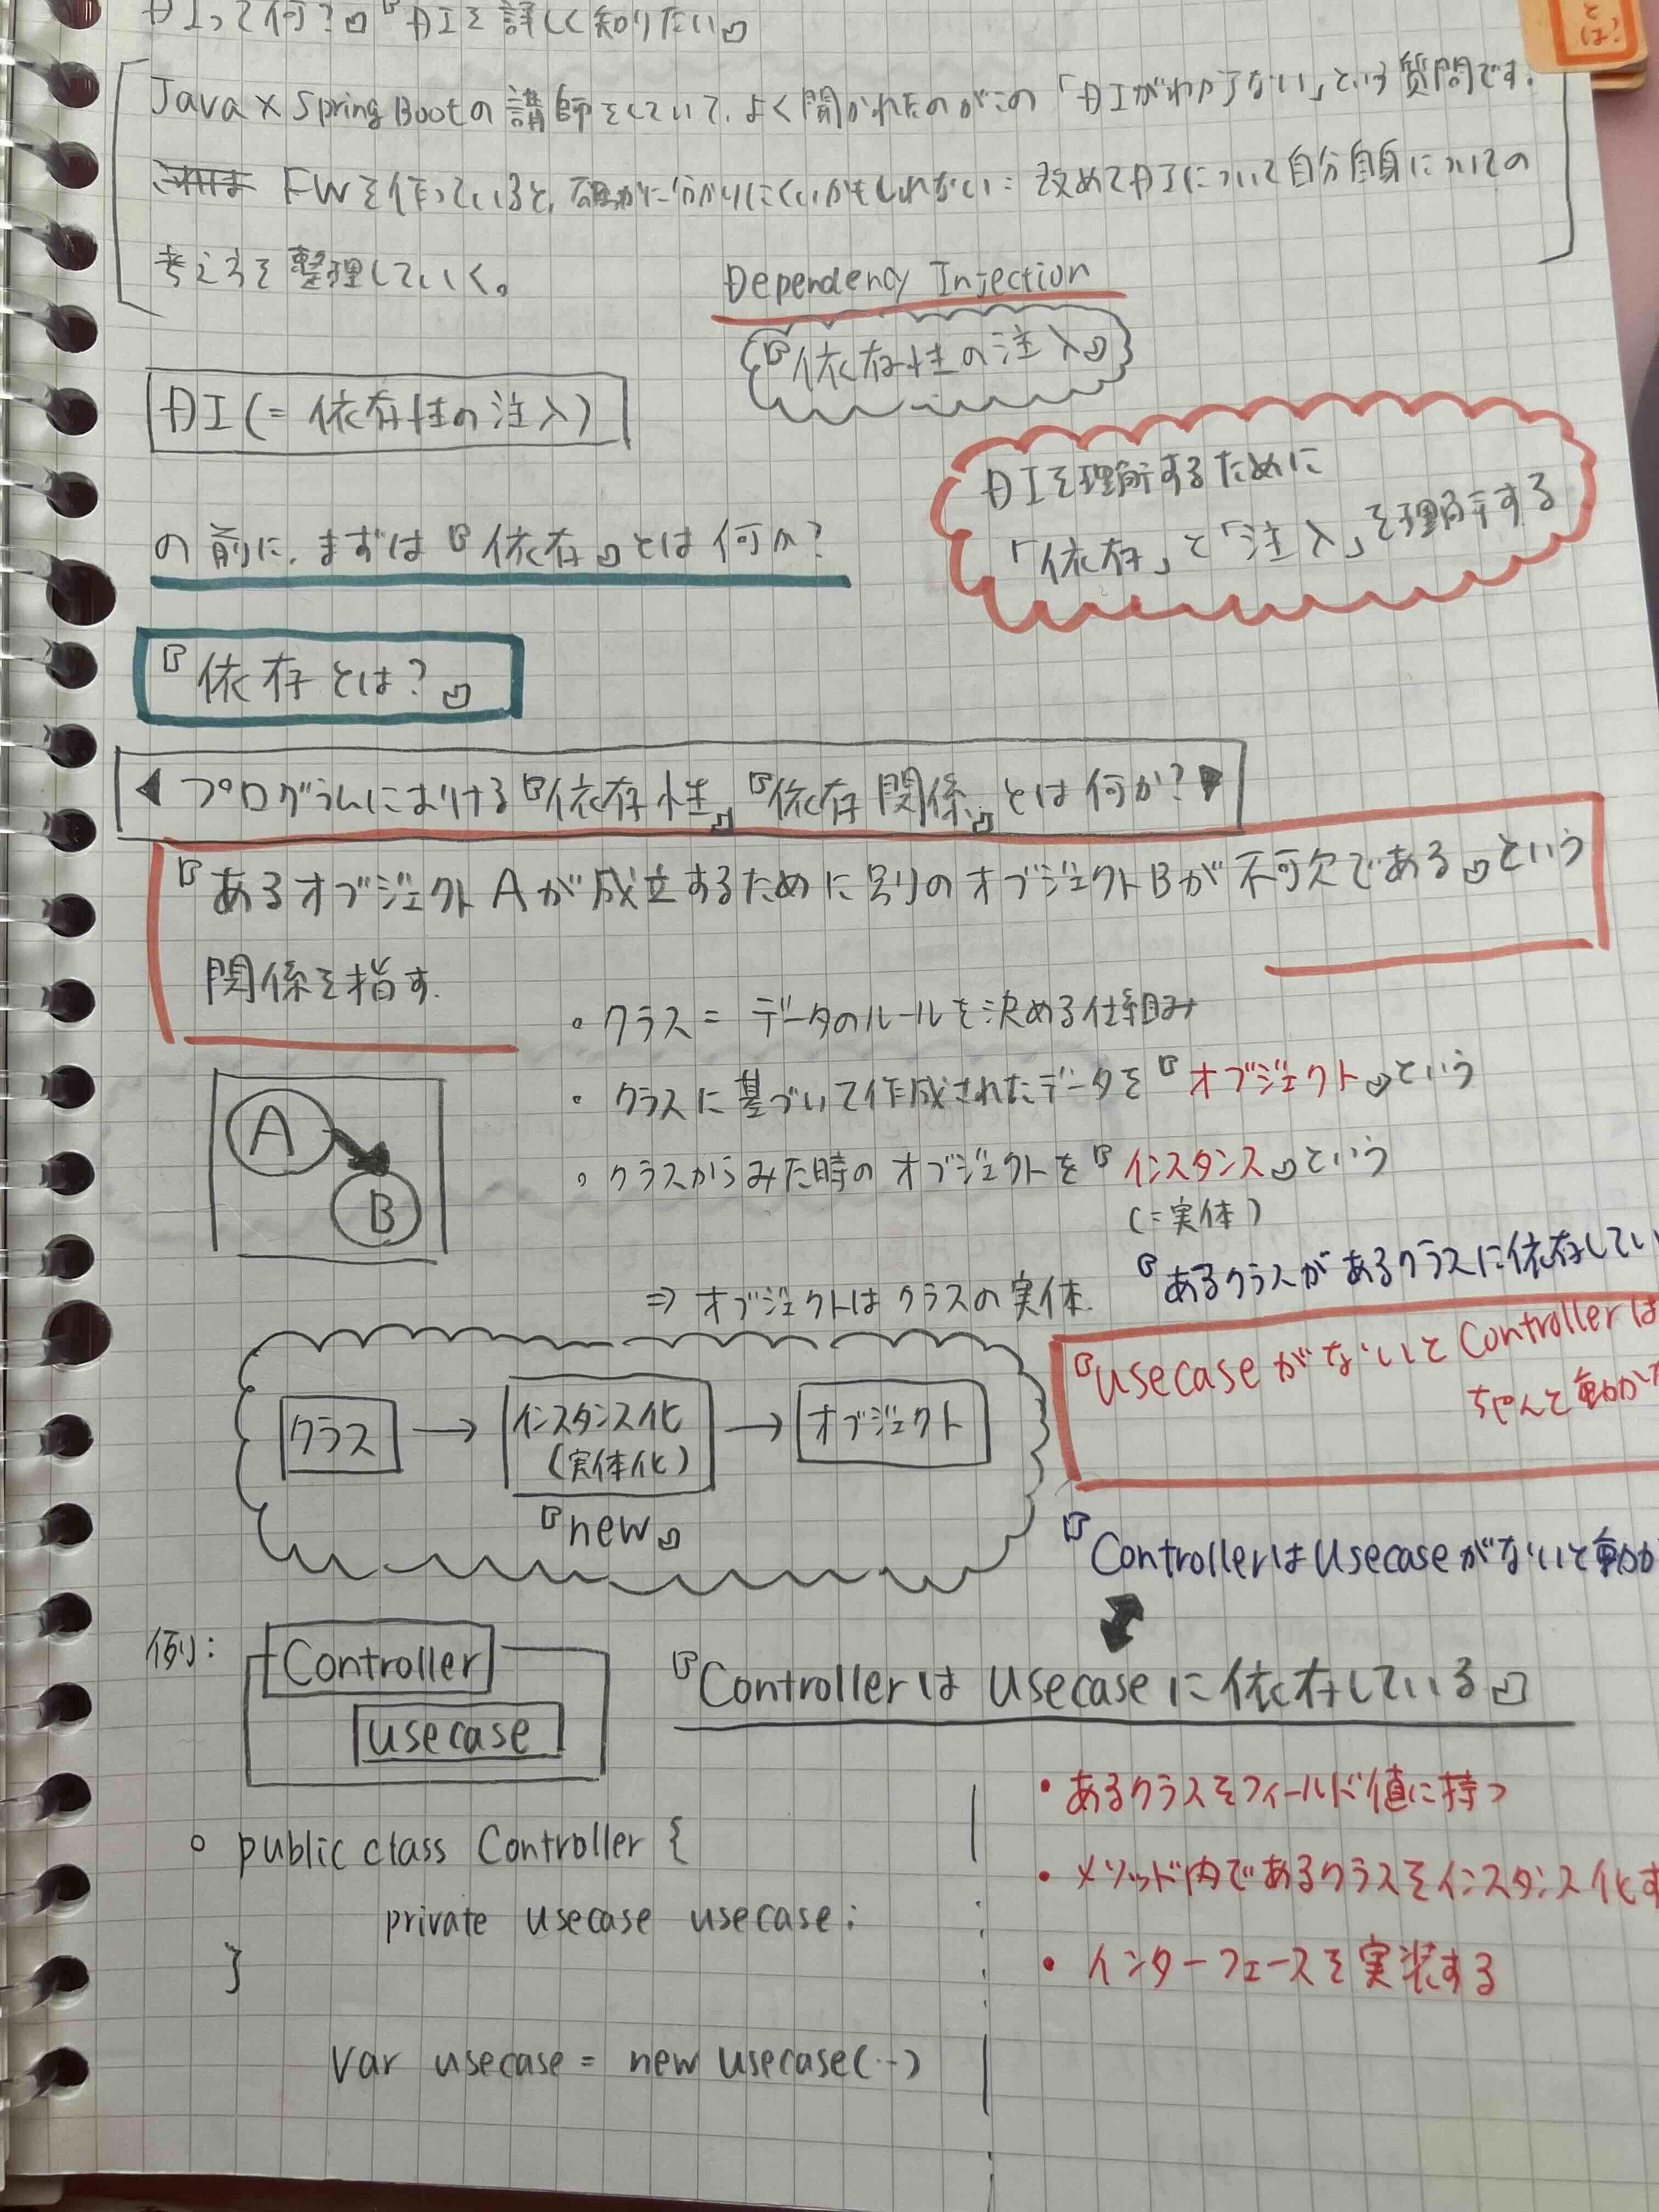 DIって何?』『DIを詳しく知りたい』
とは?
Java×Spring Bootの講師をしていて、よく聞かれたのがこの「DIがわからない」という質問です。
これは FWを作っていると、確かに分かりにくいかもしれない: 改めてDIについて自分自身についての
考え方を整理していく。
Dependency Injection
『依存性の注入』
DI(= 依存性の注入)
DIを理解するために
「依存」と「注入」を理解する
の前に、まずは『依存』とは何か?
『依存とは?』
◀ プログラムにおける『依存性』『依存関係』とは何か?▶
『あるオブジェクトAが成立するために別のオブジェクトBが不可欠である』という
関係を指す.
・クラス = データのルールを決める仕組み
・クラスに基づいて作成されたデータを『オブジェクト』という
・クラスからみた時のオブジェクトを『インスタンス』という
(=実体)
A
B
⇒ オブジェクトはクラスの実体.
『あるクラスがあるクラスに依存してい
『usecaseがないとControllerは
ちゃんと動か
クラス → インスタンス化 → オブジェクト
(実体化)
『new』
『ControllerはUsecaseがないと動か
例:
Controller
usecase
『Controllerは Usecaseに依存している』
・あるクラスをフィールド値に持つ
・メソッド内であるクラスをインスタンス化す
・インターフェースを実装する
○ public class Controller {
private Usecase usecase;
}
Var usecase = new Usecase(‥)